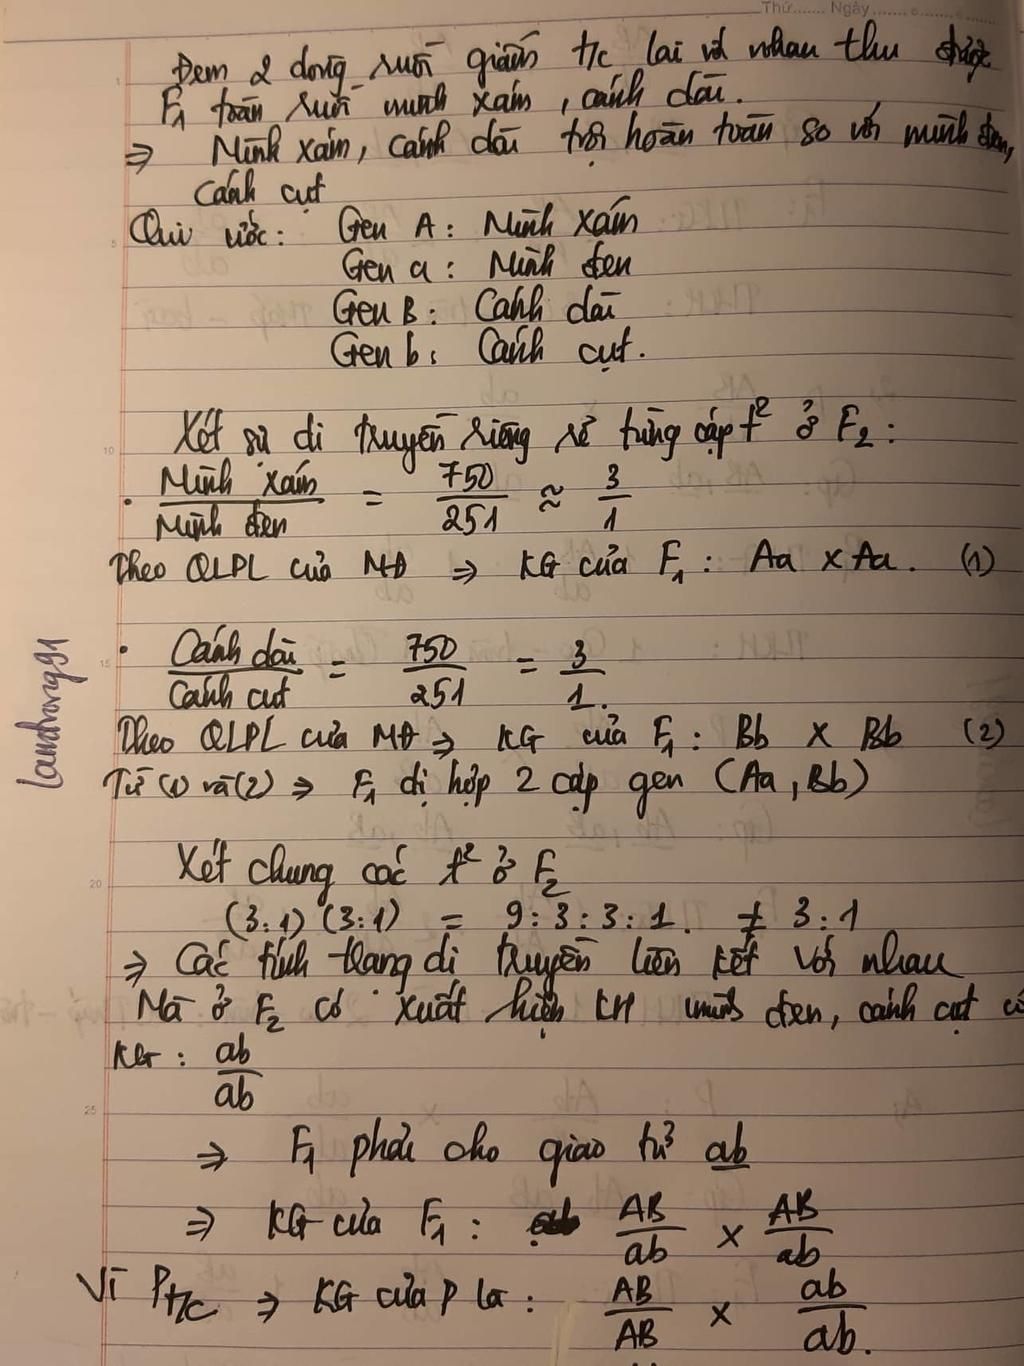 Thứ...... Ngày......
Đem 2 dòng ruồi giấm t/c lai với nhau thu được
F1 toàn ruồi mình xám, cánh dài.
⇒ Mình xám, cánh dài trội hoàn toàn so với mình đen,
cánh cụt
Qui ước: Gen A: Mình xám
Gen a: Mình đen
Gen B: Cánh dài
Gen b: Cánh cụt.
Xét sự di truyền riêng rẽ từng cặp t² ở F2:
• Mình xám / Mình đen = 750/251 ≈ 3/1
Theo QLPL của MĐ ⇒ KG của F1: Aa x Aa. (1)
• Cánh dài / Cánh cụt = 750/251 = 3/1.
Theo QLPL của MĐ ⇒ KG của F1: Bb x Bb (2)
Từ (1) và (2) ⇒ F1 dị hợp 2 cặp gen (Aa, Bb)
landhong91
Xét chung các t² ở F2
(3:1) (3:1) = 9:3:3:1. ≠ 3:1
⇒ Các tính trạng di truyền liên kết với nhau
Mà ở F2 có xuất hiện KH mình đen, cánh cụt có
KG: ab/ab
⇒ F1 phải cho giao tử ab
⇒ KG của F1: AB/ab x AB/ab
Vì Pt/c ⇒ KG của P là: AB/AB x ab/ab.